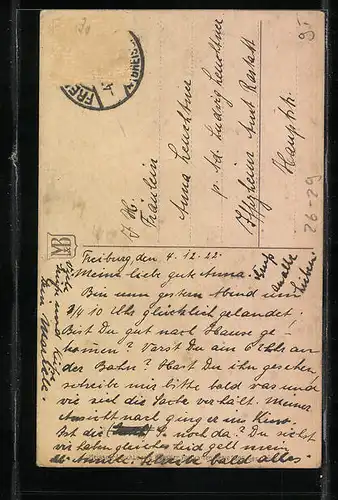 Fräulein
Anna Leuchtner
p. Ad. Ludwig Leuchtner
Iffezheim Amt Rastatt
Hauptstr.
26-29
FREI
MB
Freiburg, den 4.12.22.
Meine liebe gute Anna.
Bin nun gestern Abend um
3/4 10 Uhr glücklich gelandet!
Bist Du gut nach Hause ge-
kommen? Warst Du um 6 Uhr an
der Bahn? Hast Du ihn gesehen
schreibe mir bitte bald was und
wie sich die Sache verhält. Meiner
Ansicht nach ging er ins Kino.
Ist die noch da? Du siehst
wir haben gleiches heid gelt mein
schreibe bald alles.